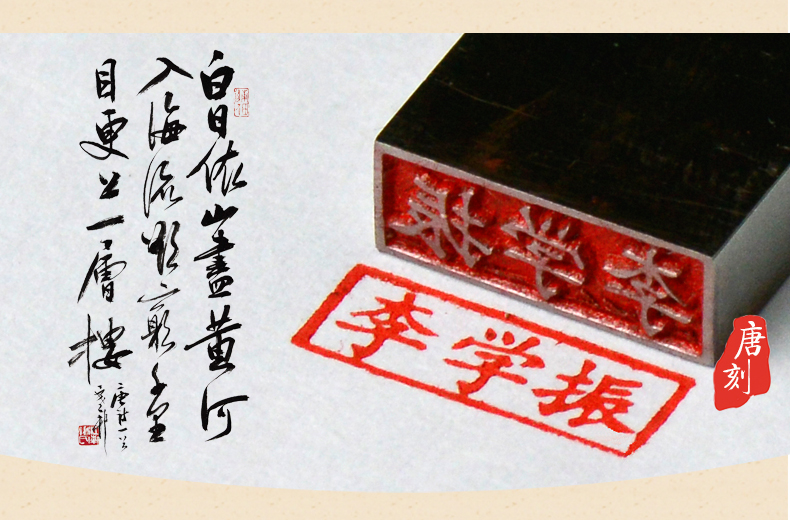 白日依山盡黄河
入海流欲窮千里
目更上一層樓
李学振
李学振
唐刻